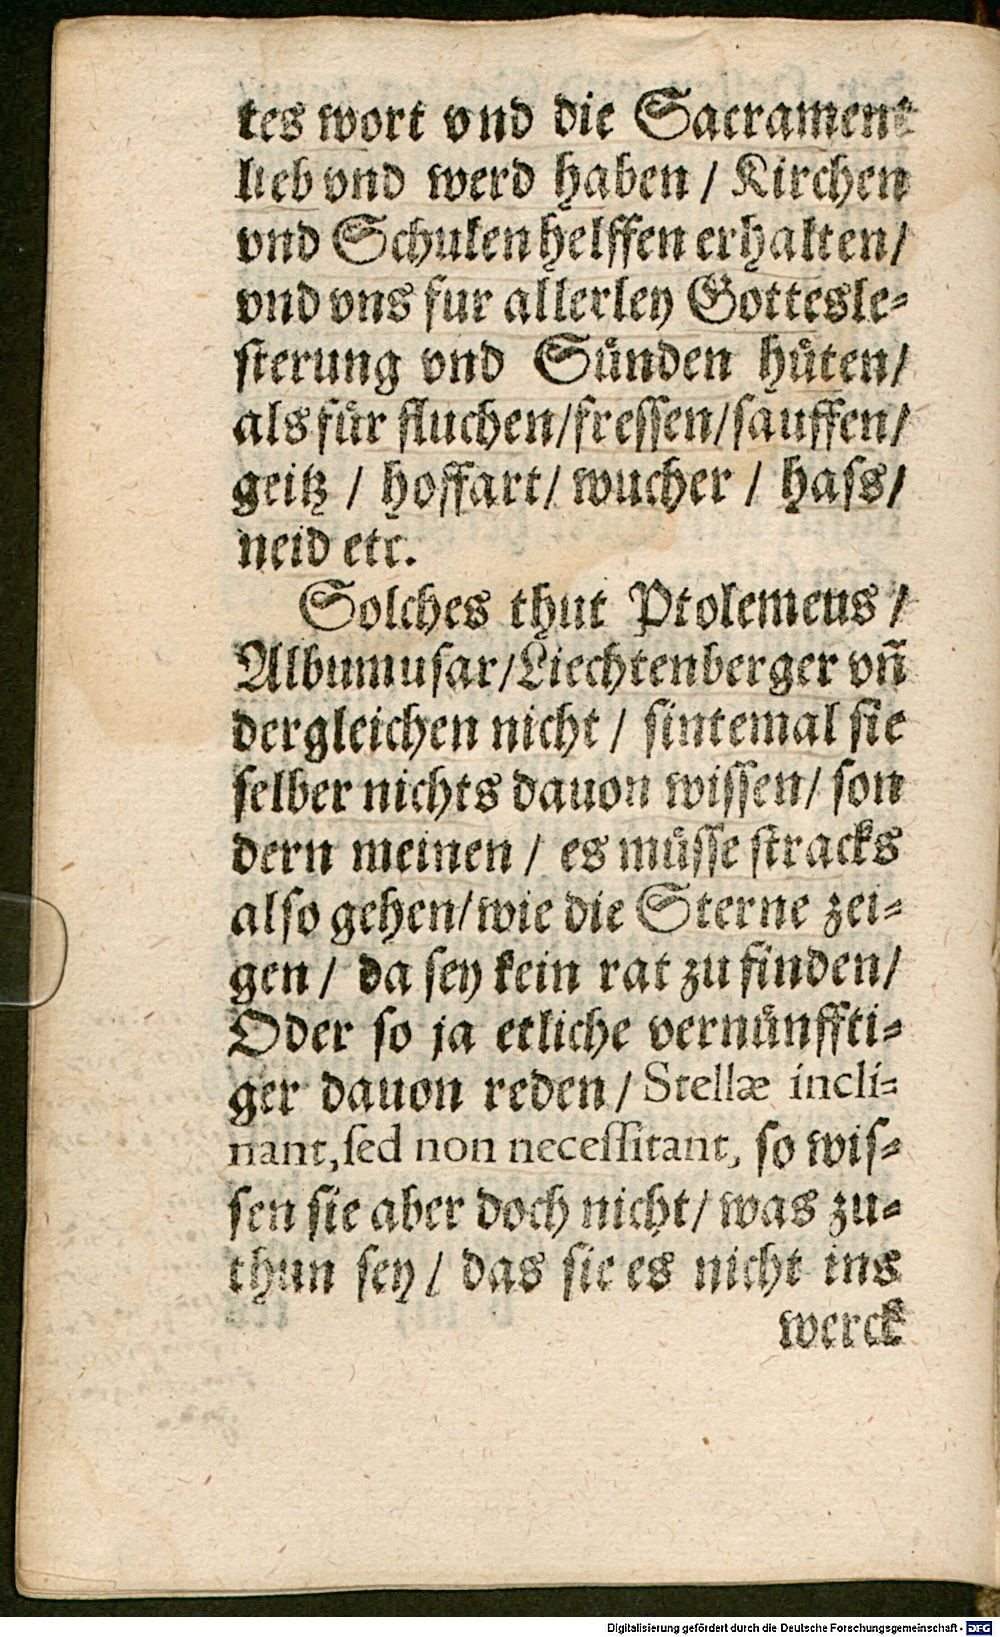 tes wort vnd die Sacrament
lieb vnd werd haben / Kirchen
vnd Schulen helffen erhalten /
vnd vns fur allerley Gottesle⸗
ſterung vnd Suͤnden huͤten /
als fuͤr fluchen / freſſen / ſauffen /
geitz / hoffart / wucher / haſs /
neid etc.
Solches thut Ptolemeus /
Albumuſar / Liechtenberger vñ
dergleichen nicht / ſintemal ſie
ſelber nichts dauon wiſſen / ſon
dern meinen / es muͤſſe ſtracks
alſo gehen / wie die Sterne zei⸗
gen / da ſey kein rat zu finden /
Oder ſo ja etliche vernuͤnffti⸗
ger dauon reden / Stellæ incli⸗
nant, ſed non neceſſitant, ſo wiſ⸗
ſen ſie aber doch nicht / was zu⸗
thun ſey / das ſie es nicht ins
werck
Digitalisierung gefördert durch die Deutsche Forschungsgemeinschaft - DFG